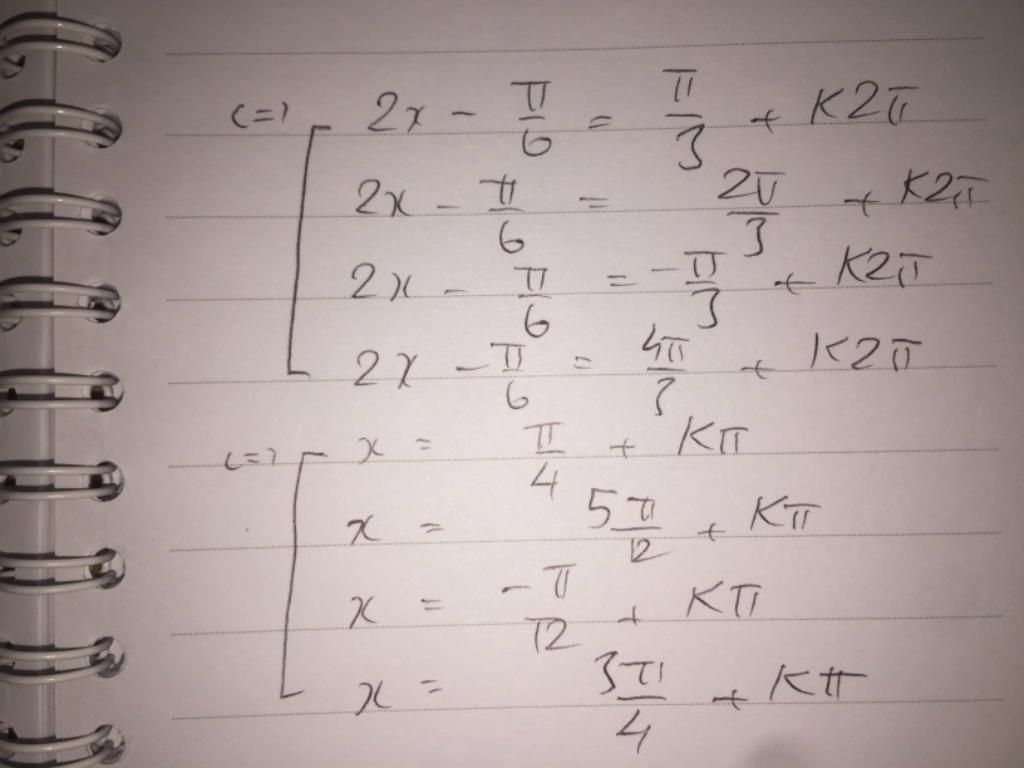 <=> [ 2x - π/6 = π/3 + K2π
2x - π/6 = 2π/3 + K2π
2x - π/6 = -π/3 + K2π
2x - π/6 = 4π/3 + K2π
<=> [ x = π/4 + Kπ
x = 5π/12 + Kπ
x = -π/12 + Kπ
x = 3π/4 + Kπ